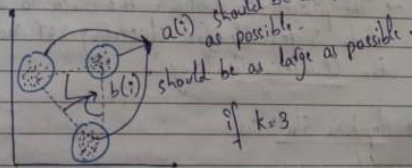 a(i) should be
as possible.
b(i) should be as large as possible.
if k=3